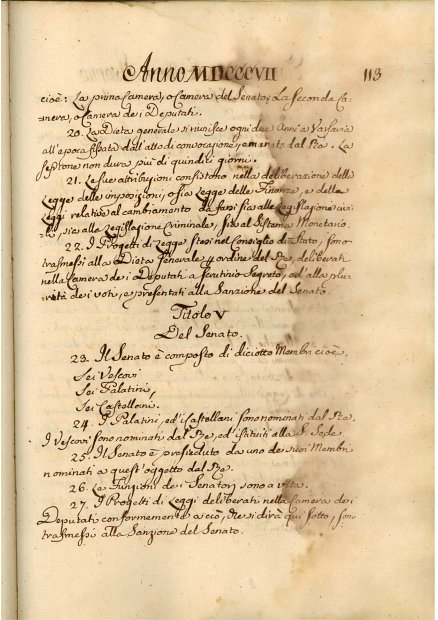 Anno MDCCCVII
113
cioè: La prima Camera, o Camera del Senato; La Seconda Ca-
mera, o Camera dei Deputati.
20. La Dieta generale si riunisce ogni due Anni a Varsavia
all'epoca fissata dall'atto di convocazione, emanato dal Rè. La
sessione non dura più di quindici giorni.
21. Le sue attribuzioni consistono nella deliberazione delle
Legge delle imposizioni, o sia Legge delle Finanze, e delle
Leggi relative al cambiamento da farsi sia alla Legislazione civi-
le, sia alla Legislazione Criminale, sia al Sistema Monetario.
22. I Progetti di Legge stesi nel Consiglio di Stato, sono
trasmessi alla Dieta Generale p ordine del Rè, deliberati
nella Camera dei Deputati a scrutinio Segreto, ed alla plu-
ralità dei voti, e presentati alla Sanzione del Senato.
Titolo V
Del Senato.
23. Il Senato è composto di diciotto Membri cioè.
Sei Vescovi
Sei Palatini,
Sei Castellani.
24. I Palatini, ed i Castellani sono nominati dal Rè.
I Vescovi sono nominati dal Rè, ed istituiti dalla S. Sede
25. Il Senato è presieduto da uno de suoi Membri
nominati a quest'oggetto dal Rè.
26. Le Funzioni dei Senatori sono a vita.
27. I Progetti di Leggi deliberati nella Camera dei
Deputati conformemente a ciò, che si dirà qui sotto, sono
trasmessi alla Sanzione del Senato.